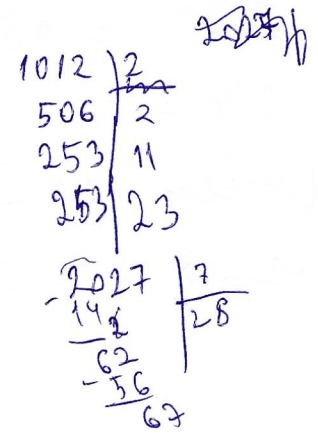 1012 | 2
506 | 2
253 | 11
253 | 23
2027 | 7
- 142 | 28
62
- 56
67